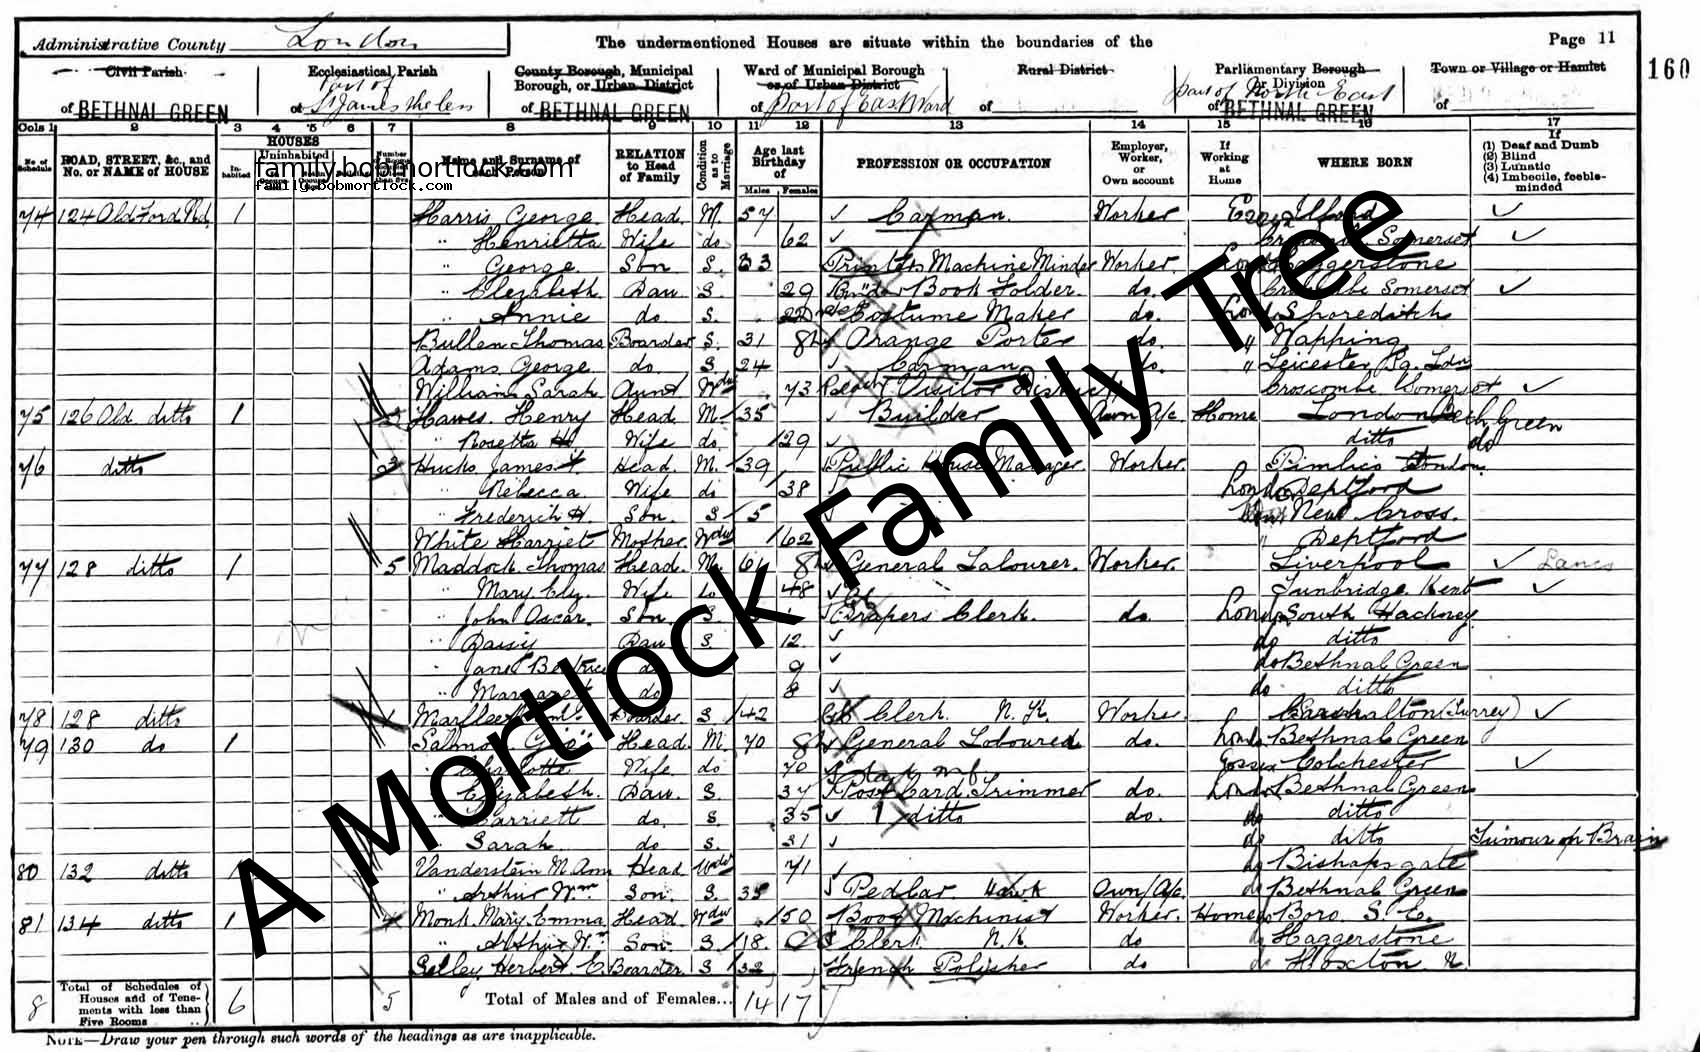 Administrative County London
The undermentioned Houses are situate within the boundaries of the
Page 11
160
Civil Parish
of BETHNAL GREEN
Ecclesiastical Parish
Part of
of St James the less
County Borough, Municipal
Borough, or Urban District
of BETHNAL GREEN
Ward of Municipal Borough
or of Urban District
of Part of East Ward
Rural District
of
Parliamentary Borough
or Division
part of North East
of BETHNAL GREEN
Town or Village or Hamlet
of
Cols 1 2 3 4 5 6 7 8 9 10 11 12 13 14 15 16 17
No of Schedule
ROAD, STREET, &c., and No. or NAME of HOUSE
HOUSES
In-habited
Uninhabited
Name and Surname of each Person
RELATION to Head of Family
Condition as to Marriage
Age last Birthday of
Males Females
PROFESSION OR OCCUPATION
Employer, Worker, or Own account
If Working at Home
WHERE BORN
If
(1) Deaf and Dumb
(2) Blind
(3) Lunatic
(4) Imbecile, feeble-minded
family.bobmortlock.com
family.bobmortlock.com
A Mortlock Family Tree
74 124 Old Ford Rd 1 Harris George Head M. 57 Carman Worker Ilford
" Henrietta Wife do 62 Somerset
" George Son S. 33 Printers Machine Minder Worker Haggerstone
" Elizabeth Dau S. 29 Book Folder do. Somerset
" Annie do S. 22 Costume Maker do. Shoreditch
Bullen Thomas Boarder S. 31 Orange Porter do. " Wapping
Adams George do. S. 24 Carman do. " Leicester Sq. Ldn
William Sarah Aunt Wdw 73 Visitor Croscombe Somerset
75 126 Old ditto 1 Hawes Henry Head M. 35 Builder Own A/c Home London Beth Green
" Rosetta Wife do 29 ditto do
76 ditto 3 Hucks James Head M. 39 Public House Manager Worker. Pimlico London
" Rebecca Wife do 38 London Deptford
" Frederick H. Son. S 5 New Cross.
White Harriet Mother Wdw 62 " Deptford
77 128 ditto 1 5 Maddock Thomas Head. M. 61 General Labourer. Worker. Liverpool Lancs
" Mary Elz. Wife do 48 Tunbridge Kent
" John Oscar. Son. S. Drapers Clerk. do. London South Hackney
" Daisy Dau S. 12 do ditto
" Jane Beatrice do 9 do Bethnal Green
" Margaret do 8 do ditto
78 128 ditto 1 Boarder S. 42 Clerk. N.K. Worker. Carshalton (Surrey)
79 130 do 1 Salmon Geo Head. M. 70 General Laboured do. Bethnal Green
" Charlotte Wife do 70 Essex Colchester
" Elizabeth. Dau. S. 37 Post Card Trimmer do. London Bethnal Green
" Harriett do. S. 35 ditto do. do ditto
" Sarah do S. 31 do ditto Tumour on Brain
80 132 ditto 1 Vanderstein M. Ann Head Wdw 71 do Bishopsgate
" Arthur Wm Son. S. 35 Pedlar Hawk Own A/c. do Bethnal Green
81 134 ditto 1 4 Monk Mary Emma Head Wdw 50 Boot Machinist Worker. Home do Boro. S.E.
" Arthur Wm Son. S 18 Clerk N.K do do Haggerstone
Selley Herbert E. Boarder S 32 French Polisher do do Hoxton N.
8 Total of Schedules of Houses and of Tenements with less than Five Rooms 6 5 Total of Males and of Females... 14 17
NOTE—Draw your pen through such words of the headings as are inapplicable.